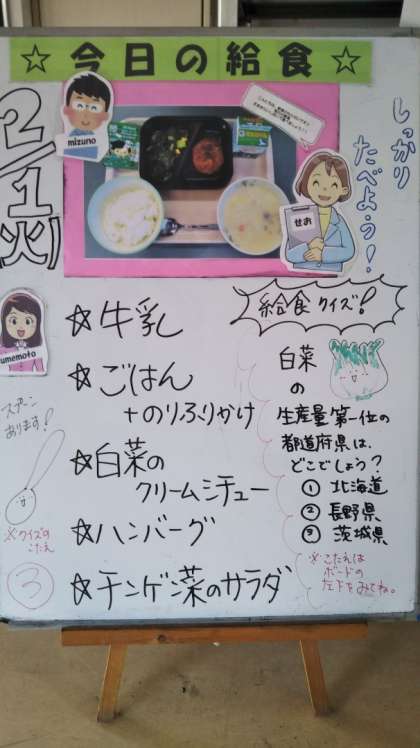 ☆今日の給食☆
2/1(火)
mizuno
せお
しっかり
たべよう!
umemoto
☆牛乳
☆ごはん
+のりふりかけ
☆白菜の
クリームシチュー
☆ハンバーグ
☆チンゲン菜のサラダ
スプーン
あります!
※クイズの
こたえ
③
給食クイズ!
白菜
の
生産量第一位の
都道府県は、
どこでしょう?
① 北海道
② 長野県
③ 茨城県
※こたえは
ボードの
左下をみてね。